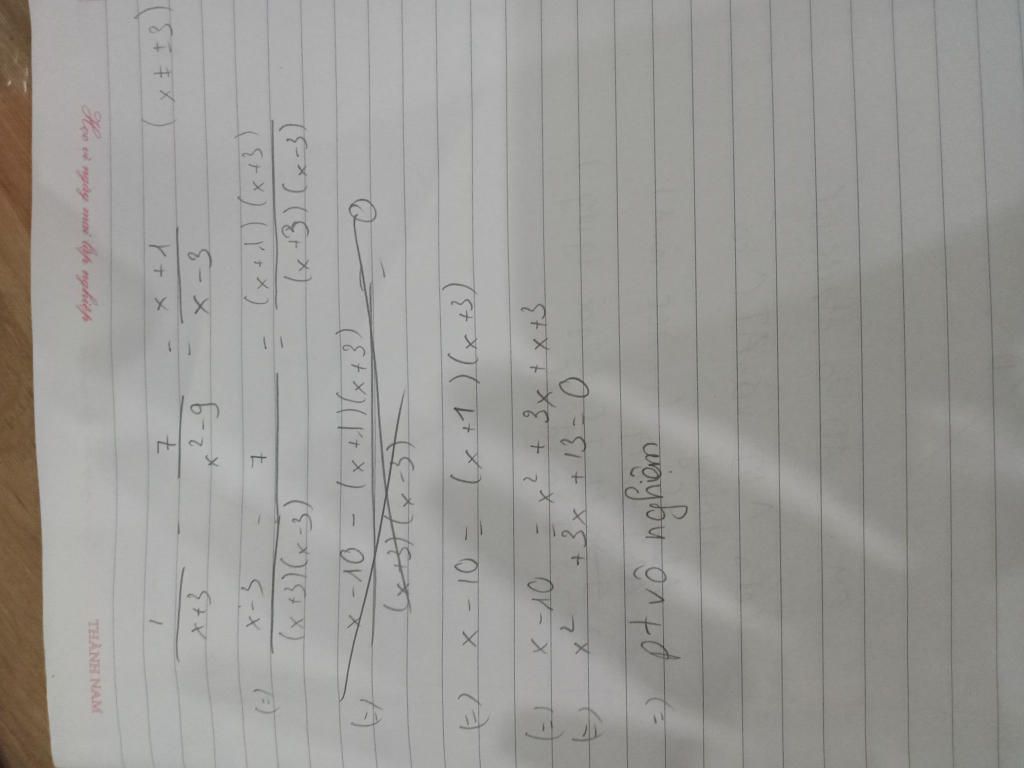 Học vì ngày mai lập nghiệp
THÀNH NAM
1/(x+3) - 7/(x²-9) = (x+1)/(x-3) (x ≠ ±3)
(=) (x-3 - 7)/((x+3)(x-3)) = ((x+1)(x+3))/((x+3)(x-3))
(=) (x-10 - (x+1)(x+3))/((x+3)(x-3)) = 0
(=) x-10 = (x+1)(x+3)
(=) x-10 = x² + 3x + x+3
(=) x² + 3x + 13 = 0
=) pt vô nghiệm